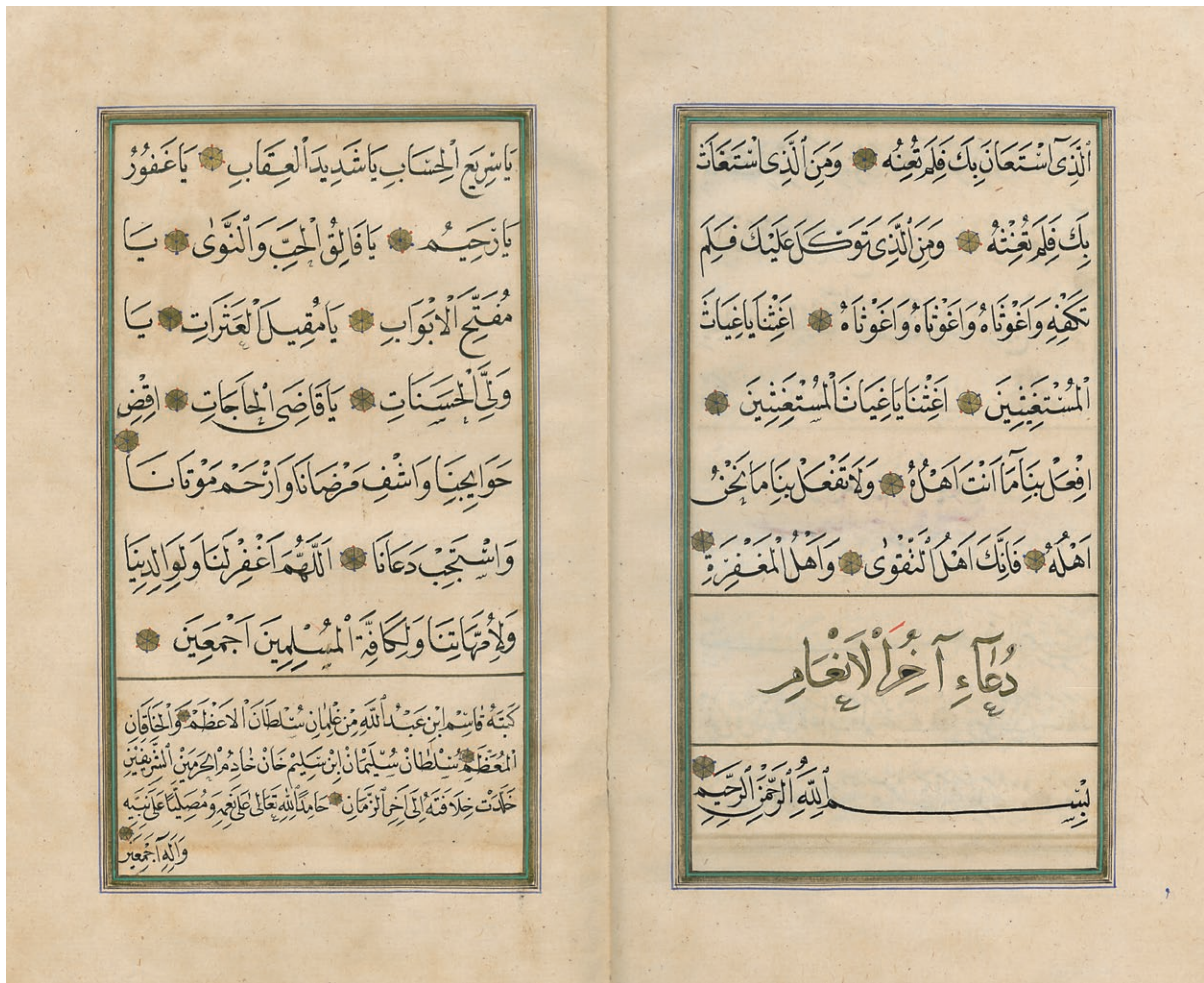 ٱلَّذِىٓ اسْتَعَانَ بِكَ فَلَمْ تُعِنْهُ وَمَنِ الَّذِى اسْتَغَاثَ
بِكَ فَلَمْ تُغِثْهُ وَمَنِ الَّذِى تَوَكَّلَ عَلَيْكَ فَلَمْ
تَكْفِهِ وَاغَوْثَاهُ وَاغَوْثَاهُ وَاغَوْثَاهُ اَغِثْنَا يَاغِيَاثَ
الْمُسْتَغِيثِينَ اَغِثْنَا يَاغِيَاثَ الْمُسْتَغِيثِينَ
اِفْعَلْ بِنَا مَٓا اَنْتَ اَهْلُهُ وَلَا تَفْعَلْ بِنَا مَا نَحْنُ
اَهْلُهُ فَاِنَّكَ اَهْلُ التَّقْوٰى وَاَهْلُ الْمَغْفِرَةِ
دُعَآءِ آخِرُ الْاَنْعَامِ
بِسْمِ اللّٰهِ الرَّحْمٰنِ الرَّحِيمِ
يَاسَرِيعَ الْحِسَابِ يَاشَدِيدَ الْعِقَابِ يَاغَفُورُ
يَارَحِيمُ يَافَالِقَ الْحَبِّ وَالنَّوٰى يَا
مُفَتِّحَ الْاَبْوَابِ يَامُقِيلَ الْعَثَرَاتِ يَا
وَلِىَّ الْحَسَنَاتِ يَاقَاضِىَ الْحَاجَاتِ اِقْضِ
حَوَايِجَنَا وَاشْفِ مَرْضَانَا وَارْحَمْ مَوْتَانَا
وَاسْتَجِبْ دَعَانَا اَللّٰهُمَّ اغْفِرْ لَنَا وَلِوَالِدِينَا
وَلِاُمَّهَاتِنَا وَلِكَافَّةِ الْمُسْلِمِينَ اَجْمَعِينَ
كَتَبَهُ قَاسِم ابْن عَبْدُ اللّٰهِ مِنْ غِلْمَانِ سُلْطَانَ الْاَعْظَمْ وَالْخَاقَانِ
الْمُعَظَّمْ سُلْطَان سُلَيْمَانْ ابْن سَلِيمْ خَانْ خَادِمُ الْحَرَمَيْنِ الشَّرِيفَيْنِ
خَلَّدَتْ خِلَافَتُهُ اِلٰى اٰخِرِ الزَّمَانِ حَامِدًا لِلّٰهِ تَعَالٰى عَلٰى نِعَمِهِ وَمُصَلِّيًا عَلٰى نَبِيِّهِ
وَاٰلِهِ اَجْمَعِينَ